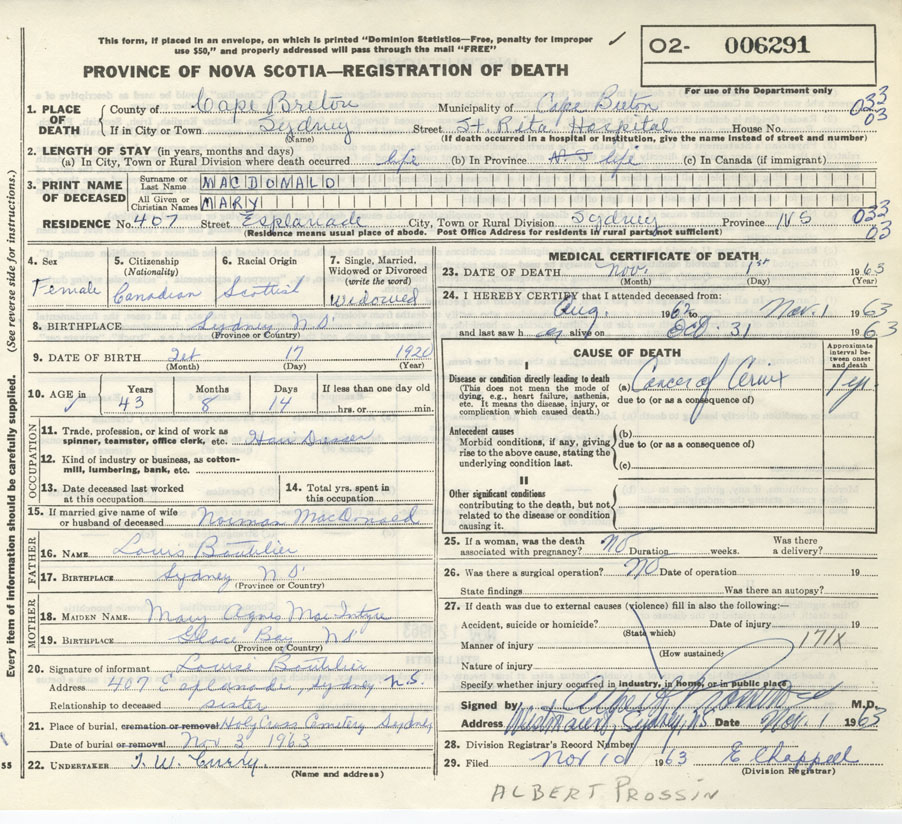 This form, if placed in an envelope, on which is printed "Dominion Statistics—Free, penalty for improper
use $50," and properly addressed will pass through the mail "FREE"
O2- 006291
PROVINCE OF NOVA SCOTIA—REGISTRATION OF DEATH
For use of the Department only
1. PLACE OF DEATH { County of Cape Breton Municipality of Cape Breton 033
If in City or Town Sydney Street St. Rita Hospital House No. 03
(Name) (If death occurred in a hospital or institution, give the name instead of street and number)
2. LENGTH OF STAY (in years, months and days)
(a) In City, Town or Rural Division where death occurred life (b) In Province life (c) In Canada (if immigrant)
3. PRINT NAME OF DECEASED Surname or Last Name MACDONALD
All Given or Christian Names MARY
RESIDENCE No. 407 Street Esplanade City, Town or Rural Division Sydney Province NS 033 03
(Residence means usual place of abode. Post Office Address for residents in rural parts not sufficient)
4. Sex Female
5. Citizenship (Nationality) Canadian
6. Racial Origin Scottish
7. Single, Married, Widowed or Divorced (write the word) Widowed
8. BIRTHPLACE Sydney N S
(Province or Country)
9. DATE OF BIRTH 17 1920
(Month) (Day) (Year)
10. AGE in Years 43 Months 8 Days 14 If less than one day old
hrs. or min.
OCCUPATION
11. Trade, profession, or kind of work as spinner, teamster, office clerk, etc.
12. Kind of industry or business, as cotton-mill, lumbering, bank, etc.
13. Date deceased last worked at this occupation
14. Total yrs. spent in this occupation
15. If married give name of wife or husband of deceased Norman MacDonald
FATHER
16. NAME Louis Boutilier
17. BIRTHPLACE Sydney N S
(Province or Country)
MOTHER
18. MAIDEN NAME Mary Agnes MacIntyre
19. BIRTHPLACE Glace Bay NS
(Province or Country)
20. Signature of informant Louise Boutilier
Address 407 Esplanade, Sydney N.S.
Relationship to deceased sister
21. Place of burial, cremation or removal Holy Cross Cemetery Sydney
Date of burial or removal Nov 3 1963
22. UNDERTAKER T. W. Curry.
(Name and address)
MEDICAL CERTIFICATE OF DEATH
23. DATE OF DEATH Nov. 1st 1963
(Month) (Day) (Year)
24. I HEREBY CERTIFY that I attended deceased from:
Aug. 1962 to Nov. 1 1963
and last saw h er alive on Oct. 31 1963
CAUSE OF DEATH
Approximate interval between onset and death
I
Disease or condition directly leading to death (a) Cancer of Cervix 1 yr.
(This does not mean the mode of dying, e.g., heart failure, asthenia, etc. It means the disease, injury, or complication which caused death.)
due to (or as a consequence of)
Antecedent causes (b)
Morbid conditions, if any, giving rise to the above cause, stating the underlying condition last.
due to (or as a consequence of)
(c)
II
Other significant conditions
contributing to the death, but not related to the disease or condition causing it.
25. If a woman, was the death associated with pregnancy? NO Duration weeks. Was there a delivery?
26. Was there a surgical operation? NO Date of operation 19
State findings Was there an autopsy?
27. If death was due to external causes (violence) fill in also the following:—
Accident, suicide or homicide? Date of injury 19
(State which)
Manner of injury 171X
(How sustained)
Nature of injury
Specify whether injury occurred in industry, in home, or in public place
Signed by M.D.
Address Sydney, NS Date Nov. 1 1963
28. Division Registrar's Record Number
29. Filed Nov 10 1963 E Chappell
(Division Registrar)
ALBERT PROSSIN
Every item of information should be carefully supplied. (See reverse side for instructions.)
55